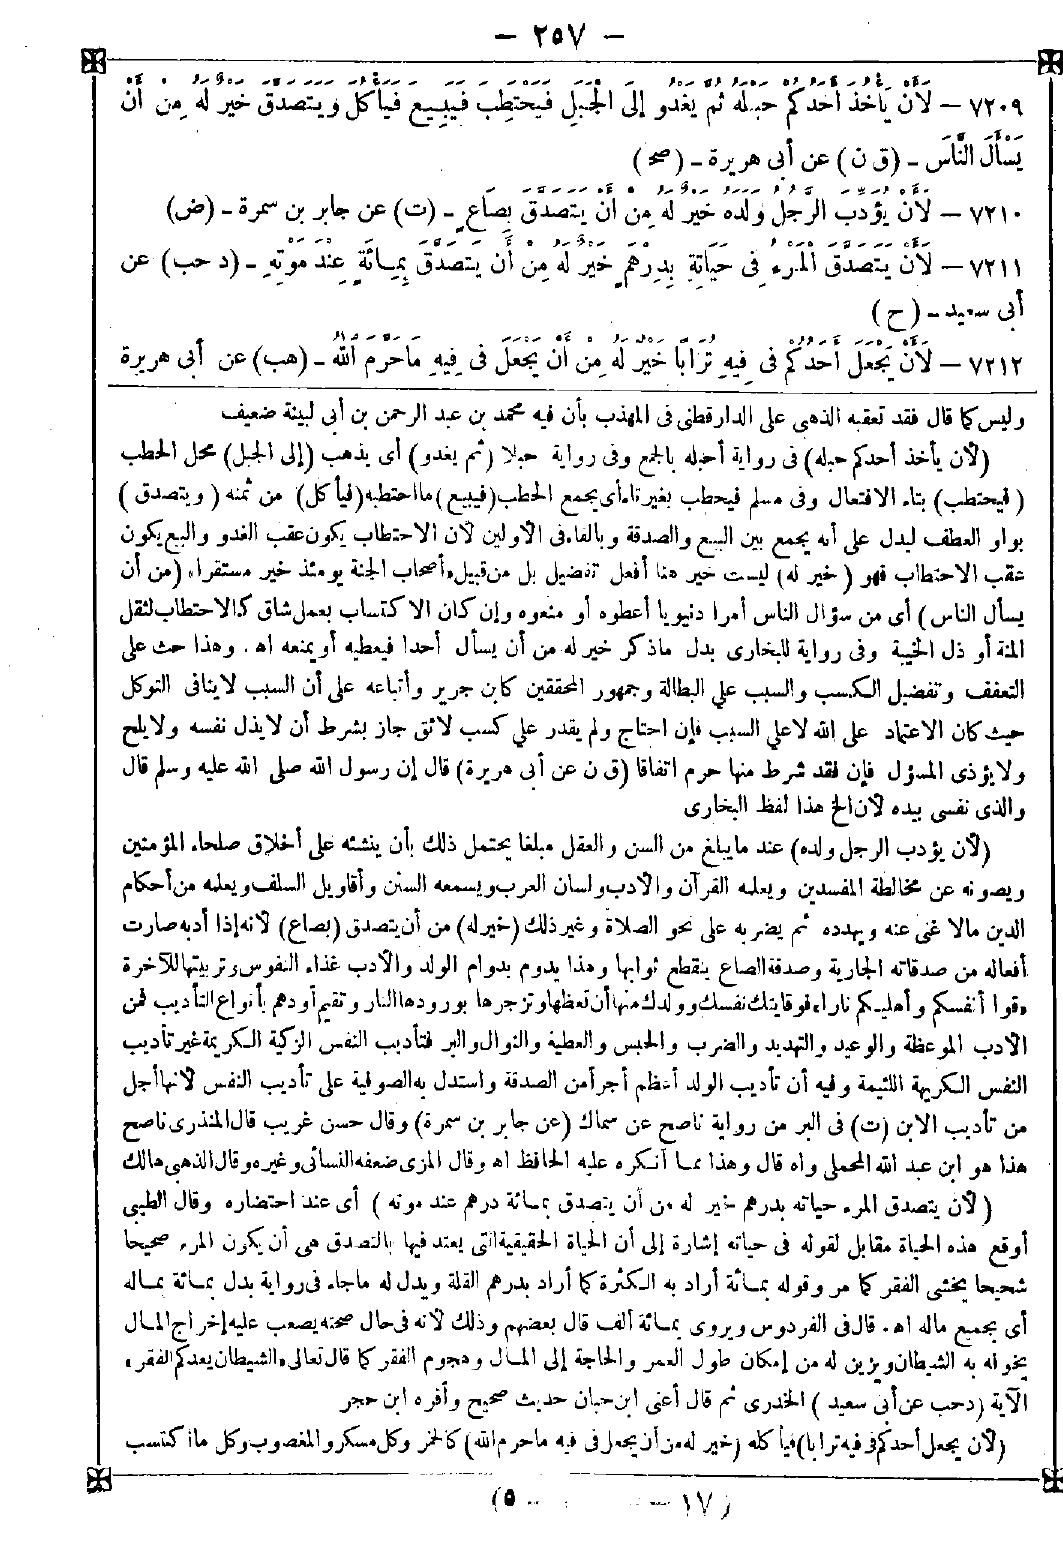 – ٢٥٧ –
٧٢٠٩ – لَأَنْ يَأْخُذَ أَحَدُكُمْ حَبْلَهُ ثُمَّ يَغْدُوَ إِلَى الْجَبَلِ فَيَحْتَطِبَ فَيَبِيعَ فَيَأْكُلَ وَيَتَصَدَّقَ خَيْرٌ لَهُ مِنْ أَنْ
يَسْأَلَ النَّاسَ – (ق ن) عن أبى هريرة – (صح)
٧٢١٠ – لَأَنْ يُؤَدِّبَ الرَّجُلُ وَلَدَهُ خَيْرٌ لَهُ مِنْ أَنْ يَتَصَدَّقَ بِصَاعٍ – (ت) عن جابر بن سمرة – (ض)
٧٢١١ – لَأَنْ يَتَصَدَّقَ الْمَرْءُ فِى حَيَاتِهِ بِدِرْهَمٍ خَيْرٌ لَهُ مِنْ أَنْ يَتَصَدَّقَ بِمِائَةٍ عِنْدَ مَوْتِهِ – (د حب) عن
أبى سعيد – (ح)
٧٢١٢ – لَأَنْ يَجْعَلَ أَحَدُكُمْ فِى فِيهِ تُرَابًا خَيْرٌ لَهُ مِنْ أَنْ يَجْعَلَ فِى فِيهِ مَا حَرَّمَ اللهُ – (هب) عن أبى هريرة
وليس كما قال فقد تعقبه الذهبى على الدارقطنى فى المهذب بأن فيه محمد بن عبد الرحمن بن أبى لبيبة ضعيف
(لأن يأخذ أحدكم حبله) فى رواية أحبله بالجمع وفى رواية حبلا (ثم يغدو) أى يذهب (إلى الجبل) محل الحطب
(فيحتطب) بتاء الافتعال وفى مسلم فيحطب بغير تاء أى يجمع الحطب (فيبيع) ما احتطبه (فيأكل) من ثمنه (ويتصدق)
بواو العطف ليدل على أنه يجمع بين البيع والصدقة وبالفاء فى الأولين لأن الاحتطاب يكون عقب الغدو والبيع يكون
عقب الاحتطاب فهو (خير له) ليست خير هنا أفعل تفضيل بل من قبيل «أصحاب الجنة يومئذ خير مستقرا» (من أن
يسأل الناس) أى من سؤال الناس أمرا دنيويا أعطوه أو منعوه وإن كان الاكتساب بعمل شاق كالاحتطاب لثقل
المنة أو ذل الخيبة وفى رواية للبخارى بدل ما ذكر خير له من أن يسأل أحدا فيعطيه أو يمنعه اه. وهذا حث على
التعفف وتفضيل الكسب والسبب على البطالة وجمهور المحققين كابن جرير وأتباعه على أن السبب لا ينافى التوكل
حيث كان الاعتماد على الله لا على السبب فإن احتاج ولم يقدر على كسب لائق جاز بشرط أن لا يذل نفسه ولا يلح
ولا يؤذى المسؤل فإن فقد شرط منها حرم اتفاقا (ق ن عن أبى هريرة) قال إن رسول الله صلى الله عليه وسلم قال
والذى نفسى بيده لأن الخ هذا لفظ البخارى
(لأن يؤدب الرجل ولده) عند ما يبلغ من السن والعقل مبلغا يحتمل ذلك بأن ينشئه على أخلاق صلحاء المؤمنين
ويصونه عن مخالطة المفسدين ويعلمه القرآن والأدب ولسان العرب ويسمعه السنن وأقاويل السلف ويعلمه من أحكام
الدين مالا غنى عنه ويهدده ثم يضربه على نحو الصلاة وغير ذلك (خير له) من أن يتصدق (بصاع) لأنه إذا أدبه صارت
أفعاله من صدقاته الجارية وصدقة الصاع ينقطع ثوابها وهذا يدوم بدوام الولد والأدب غذاء النفوس وتربيتها للآخرة
«قوا أنفسكم وأهليكم نارا» فوقايتك نفسك وولدك منها أن تعظها وتزجرها بورودها النار وتقيم أودهم بأنواع التأديب فمن
الأدب الموعظة والوعيد والتهديد والضرب والحبس والعطية والنوال والبر فتأديب النفس الزكية الكريمة غير تأديب
النفس الكريهة اللئيمة وفيه أن تأديب الولد أعظم أجرا من الصدقة واستدل به الصوفية على تأديب النفس لأنها أجل
من تأديب الابن (ت) فى البر من رواية ناصح عن سماك (عن جابر بن سمرة) وقال حسن غريب قال المنذرى ناصح
هذا هو ابن عبد الله المحملى واه قال وهذا مما أنكره عليه الحافظ اه وقال المزى ضعفه النسائى وغيره وقال الذهبى هالك
(لأن يتصدق المرء حياته بدرهم خير له من أن يتصدق بمائة درهم عند موته) أى عند احتضاره وقال الطيبى
أوقع هذه الحياة مقابل لقوله فى حياته إشارة إلى أن الحياة الحقيقية التى يعتد فيها بالتصدق هى أن يكون المرء صحيحا
شحيحا يخشى الفقر كما مر وقوله بمائة أراد به الكثرة كما أراد بدرهم القلة ويدل له ما جاء فى رواية بدل بمائة بماله
أى بجميع ماله اه. قال فى الفردوس ويروى بمائة ألف قال بعضهم وذلك لأنه فى حال صحته يصعب عليه إخراج المال
يخوفه به الشيطان ويزين له من إمكان طول العمر والحاجة إلى المال وهجوم الفقر كما قال تعالى «الشيطان يعدكم الفقر»
الآية (د حب عن أبى سعيد) الخدرى ثم قال أعنى ابن حبان حديث صحيح وأقره ابن حجر
(لأن يجعل أحدكم فى فيه ترابا) فيأكله (خير له من أن يجعل فى فيه ما حرم الله) كالخمر وكل مسكر والمغصوب وكل ما اكتسب
(١٧ – – ٥)